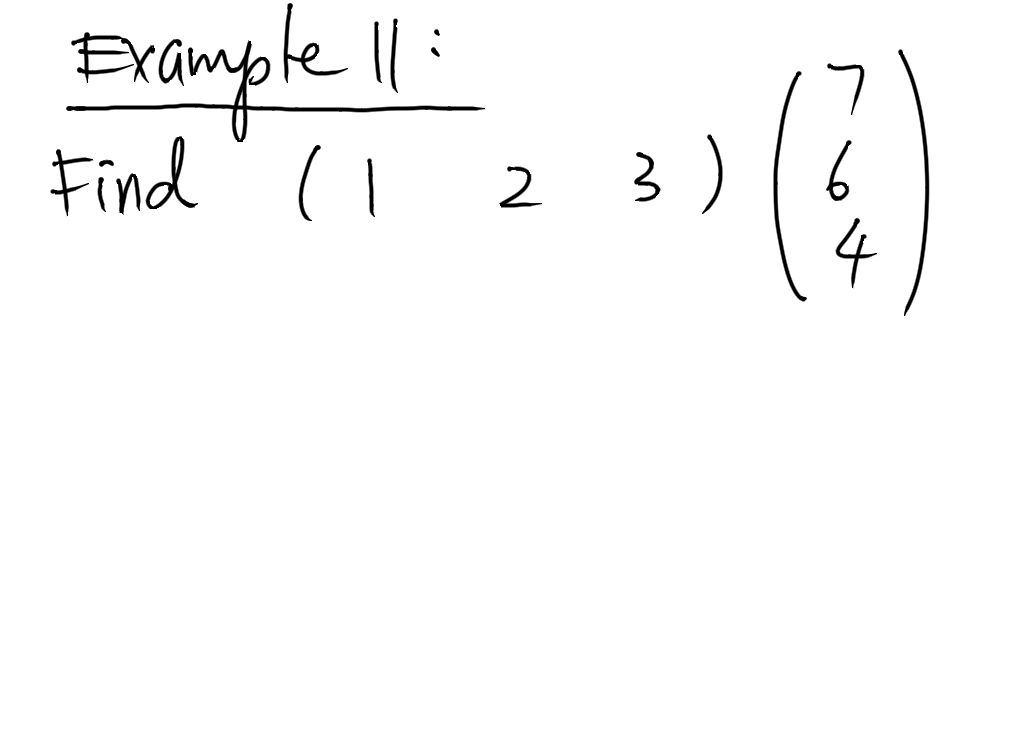 Example 11:
Find (1 2 3) (7
6
4)